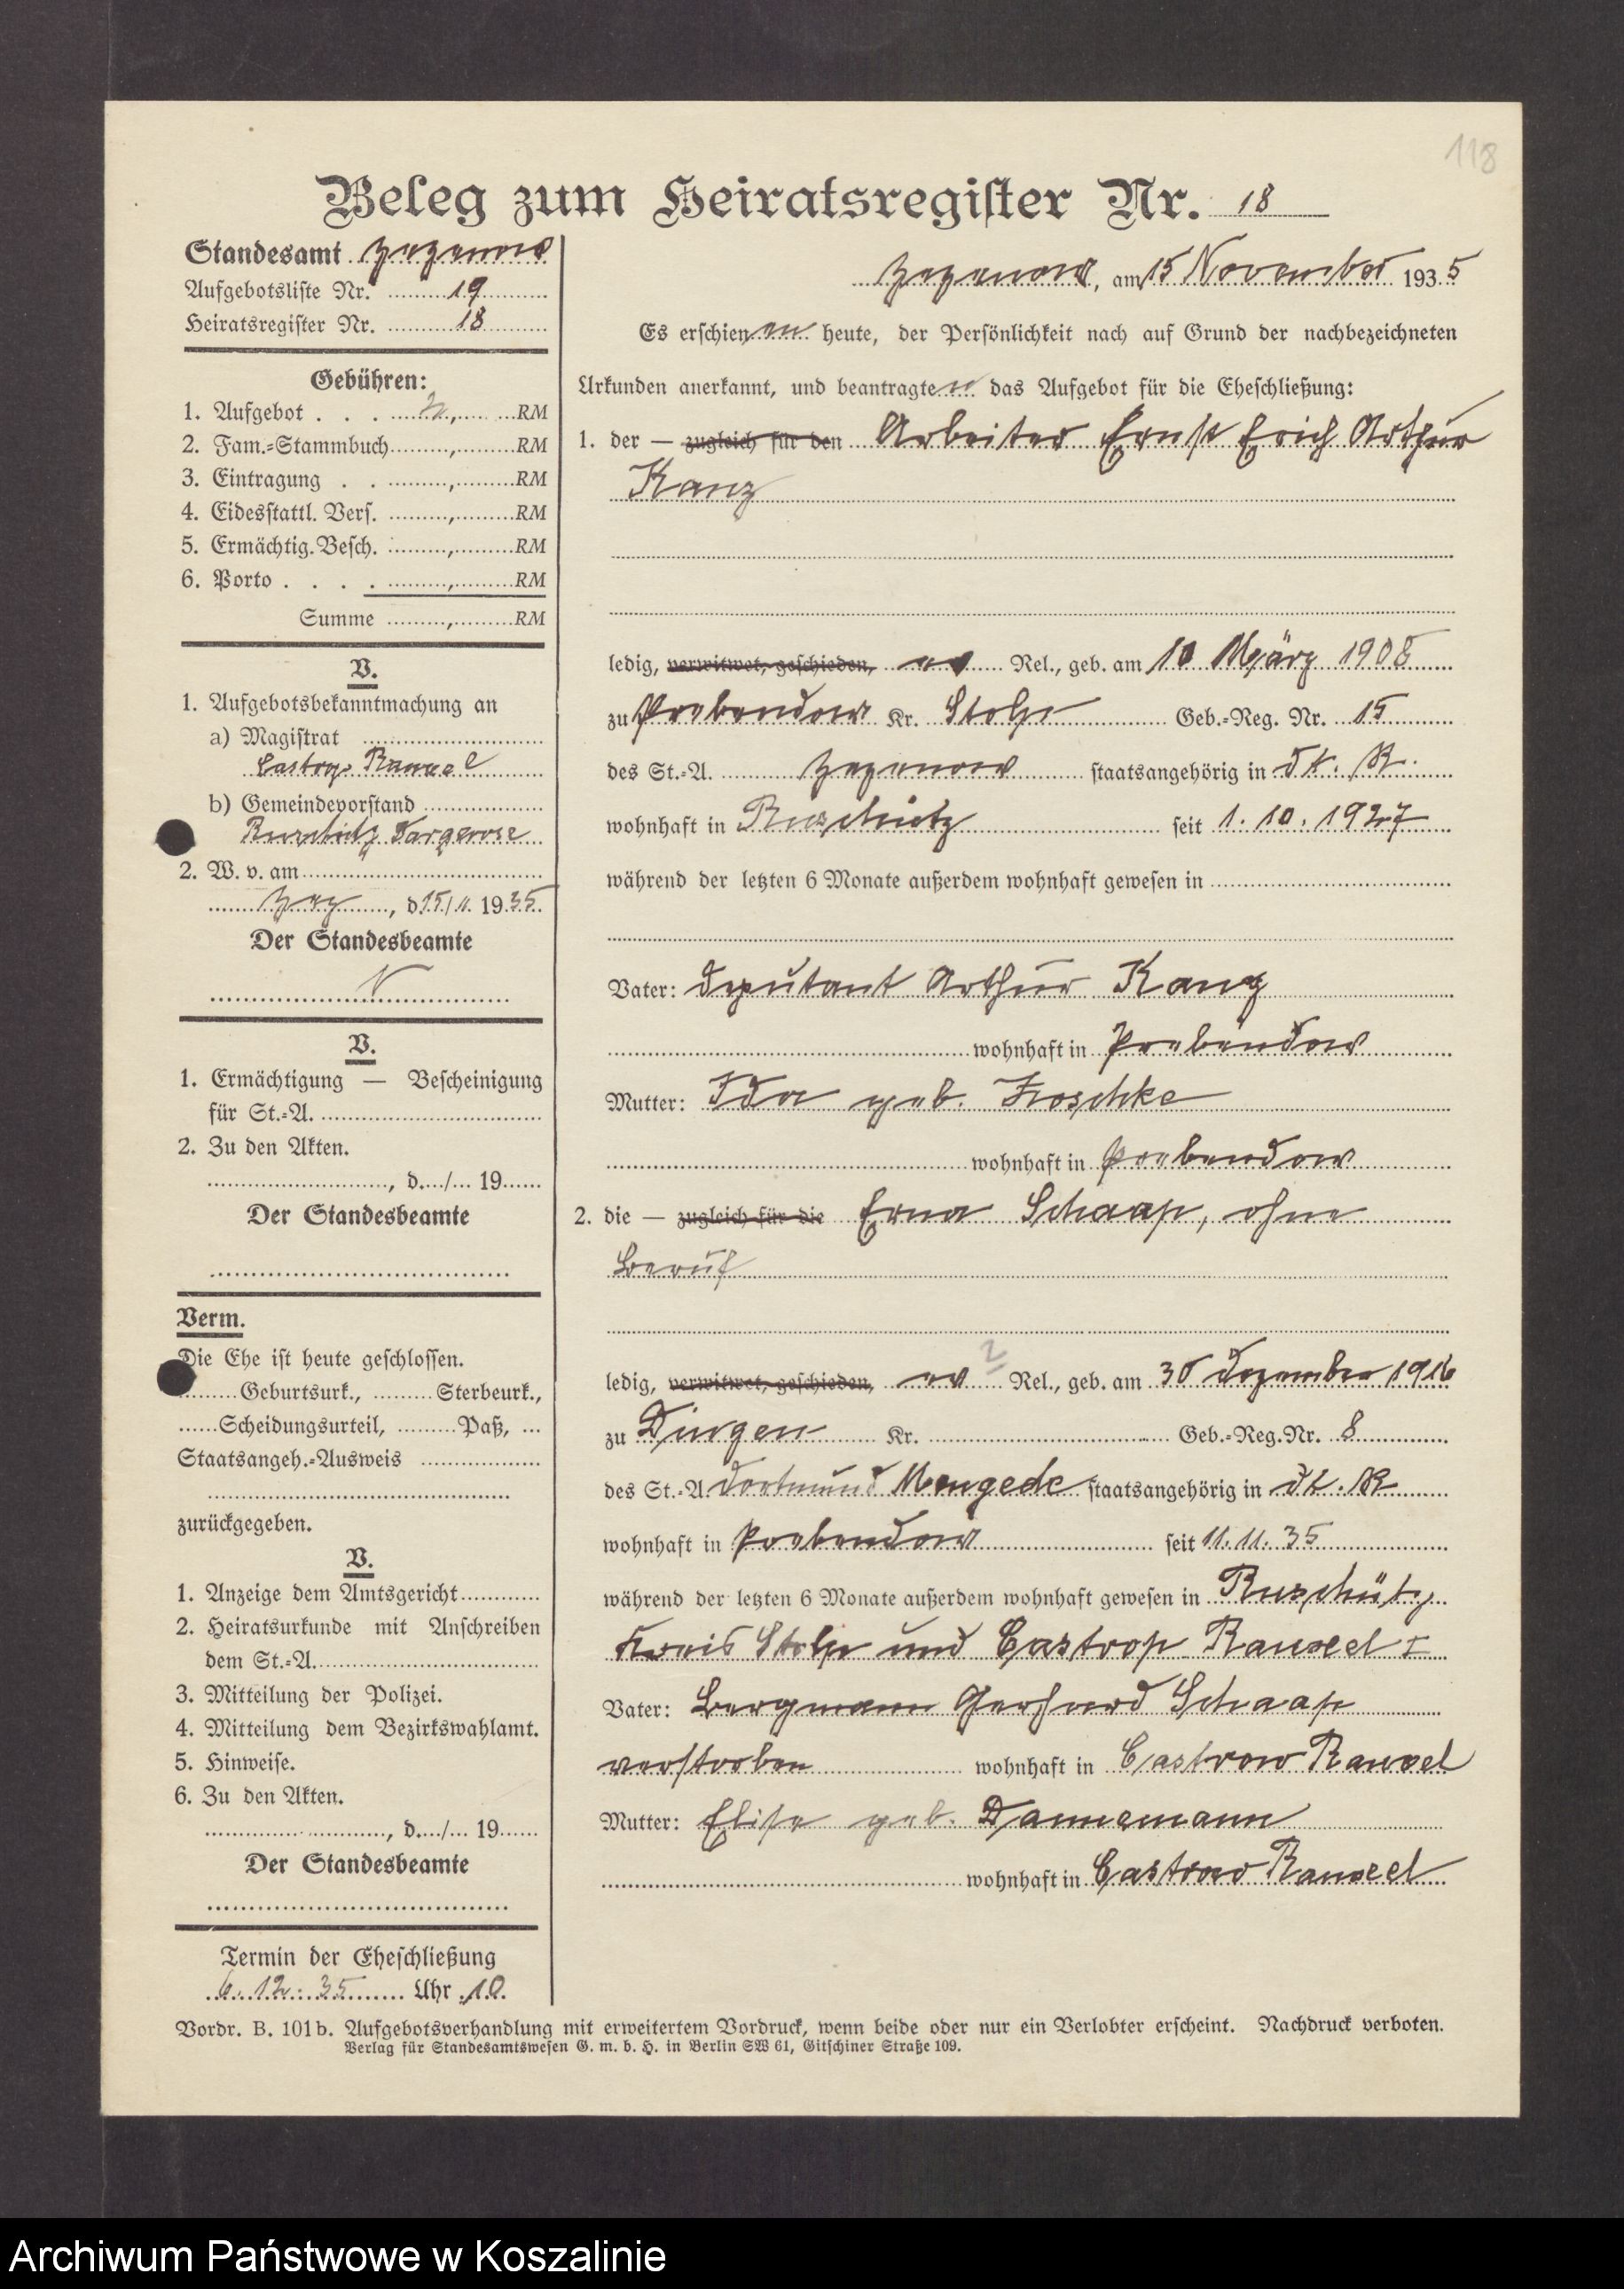 118
Beleg zum Heiratsregister Nr. 18
Standesamt Zezenow
Aufgebotsliste Nr. 19
Heiratsregister Nr. 18
Gebühren:
1. Aufgebot . . . RM
2. Fam.-Stammbuch RM
3. Eintragung . . RM
4. Eidesstattl. Vers. RM
5. Ermächtig. Besch. RM
6. Porto . . . . RM
Summe RM
V.
1. Aufgebotsbekanntmachung an
a) Magistrat
Castrop Rauxel
b) Gemeindevorstand
2. W. v. am
Zez, d. 15/11. 1935.
Der Standesbeamte
V.
1. Ermächtigung — Bescheinigung
für St.-A.
2. Zu den Akten.
, d. / 19
Der Standesbeamte
Verm.
Die Ehe ist heute geschlossen.
Geburtsurk., Sterbeurk.,
Scheidungsurteil, Paß,
Staatsangeh.-Ausweis
zurückgegeben.
V.
1. Anzeige dem Amtsgericht
2. Heiratsurkunde mit Anschreiben
dem St.-A.
3. Mitteilung der Polizei.
4. Mitteilung dem Bezirkswahlamt.
5. Hinweise.
6. Zu den Akten.
, d. / 19
Der Standesbeamte
Termin der Eheschließung
6. 12. 35 Uhr 10.
Zezenow, am 15 November 1935
Es erschienen heute, der Persönlichkeit nach auf Grund der nachbezeichneten
Urkunden anerkannt, und beantragten das Aufgebot für die Eheschließung:
1. der — zugleich für den Arbeiter Ernst Erich Arthur
Kanz
ledig, verwitwet, geschieden, ev Rel., geb. am 10 März 1908
zu Prebendow Kr. Stolp Geb.-Reg. Nr. 15
des St.-A. Zezenow staatsangehörig in dt. R.
wohnhaft in Ruschütz seit 1. 10. 1927
während der letzten 6 Monate außerdem wohnhaft gewesen in
Vater: Deputant Arthur Kanz
wohnhaft in Prebendow
Mutter: Ida geb. Froschke
wohnhaft in Prebendow
2. die — zugleich für die Erna Schaap, ohne
Beruf
2
ledig, verwitwet, geschieden, ev Rel., geb. am 30 Dezember 1916
zu Dingen Kr. Geb.-Reg.Nr. 8
des St.-A. Dortmund Mengede staatsangehörig in dt. R
wohnhaft in Prebendow seit 11. 11. 35
während der letzten 6 Monate außerdem wohnhaft gewesen in Ruschütz
Kreis Stolp und Castrop Rauxel I
Vater: Bergmann Gerhard Schaap
verstorben wohnhaft in Castrow Rauxel
Mutter: Elise geb. Dannemann
wohnhaft in Castrow Rauxel
Vordr. B. 101b. Aufgebotsverhandlung mit erweitertem Vordruck, wenn beide oder nur ein Verlobter erscheint. Nachdruck verboten.
Verlag für Standesamtswesen G. m. b. H. in Berlin SW 61, Gitschiner Straße 109.
Archiwum Państwowe w Koszalinie